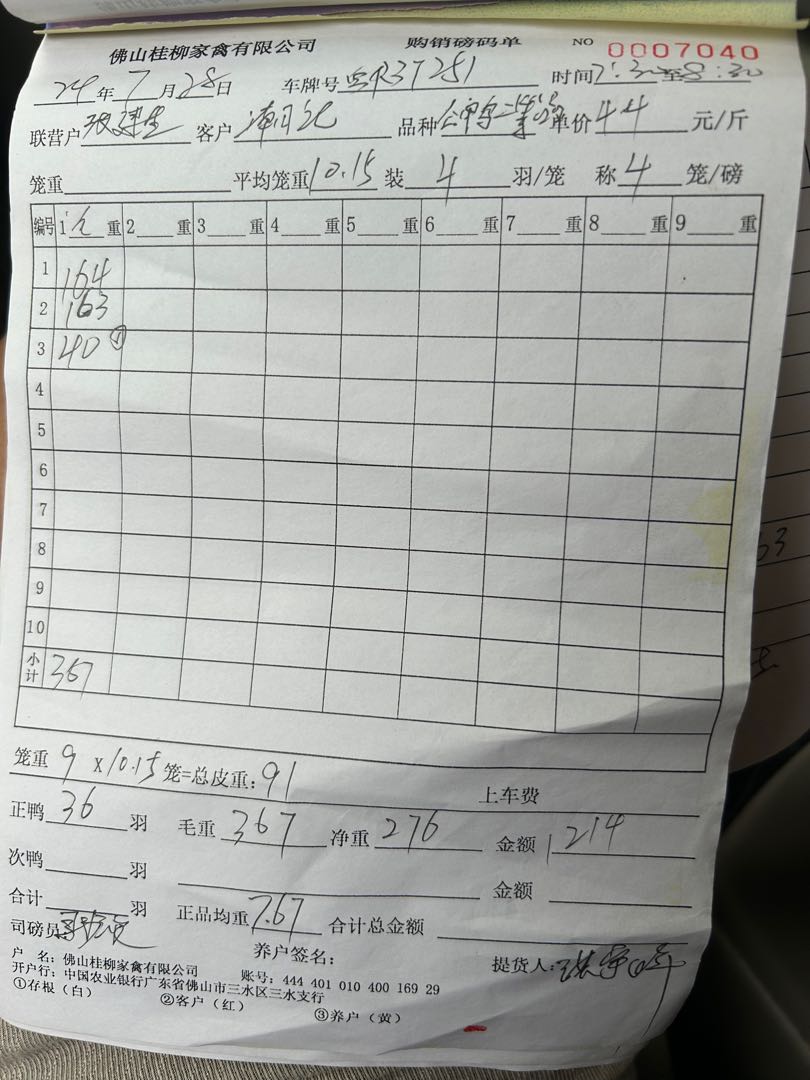 佛山桂柳家禽有限公司 购销磅码单 NO 0007040
24年7月28日 车牌号 粤R37251 时间7:30至8:30
联营户 客户 品种 单价 44 元/斤
笼重 平均笼重 10.15 装 4 羽/笼 称 4 笼/磅
编号 1 重 2 重 3 重 4 重 5 重 6 重 7 重 8 重 9 重
1 164
2 163
3 40 ①
4
5
6
7
8
9
10
小计 367
笼重 9 x10.15 笼=总皮重: 91 上车费
正鸭 36 羽 毛重 367 净重 276 金额 1214
次鸭 羽 金额
合计 羽 正品均重 7.67 合计总金额
司磅员: 养户签名: 提货人:
户 名: 佛山桂柳家禽有限公司 账号: 444 401 010 400 169 29
开户行: 中国农业银行广东省佛山市三水区三水支行
①存根(白) ②客户(红) ③养户(黄)